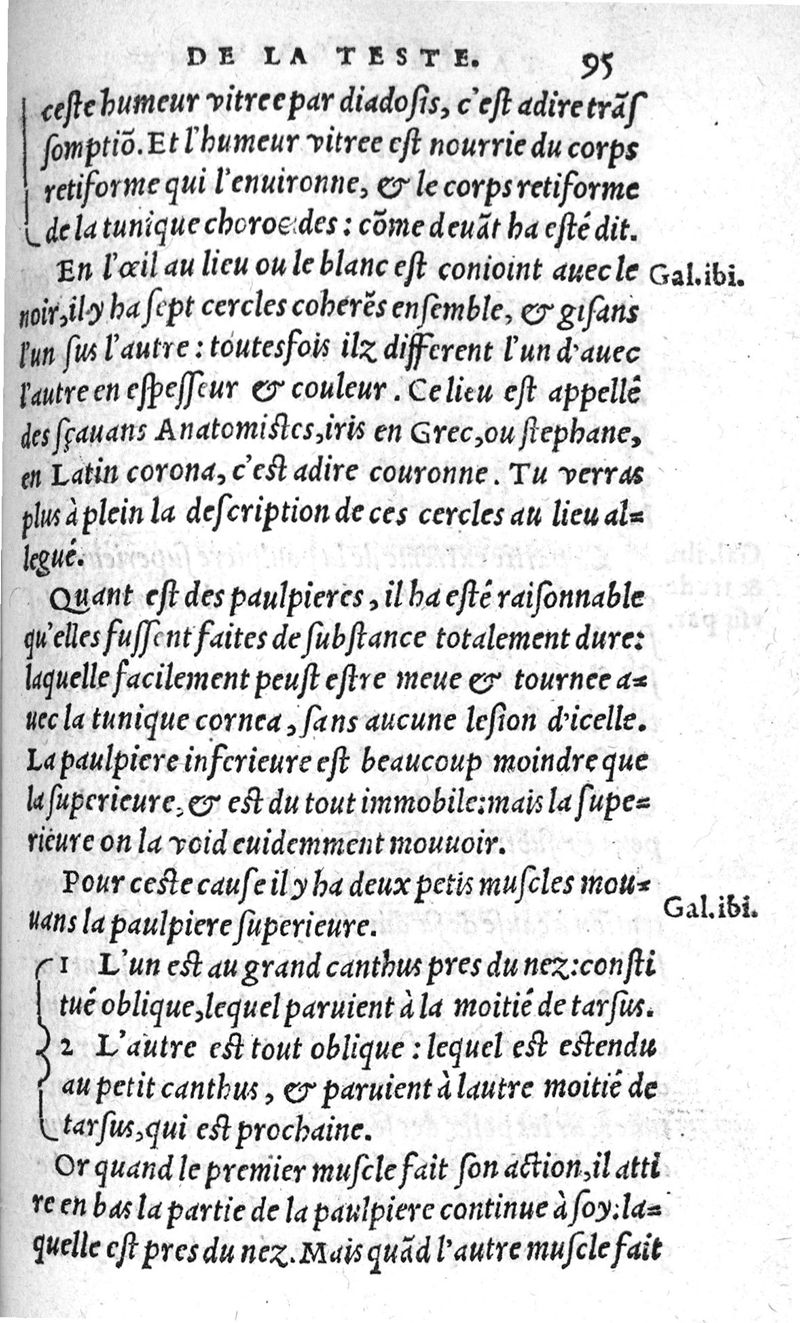 DE LA TESTE. 95
ceſte humeur vitree par diadoſis, c'eſt adire trãſ
ſomptiõ. Et l'humeur vitree eſt nourrie du corps
retiforme qui l'enuironne, & le corps retiforme
de la tunique choroedes : cõme deuãt ha eſté dit.
En l'œil au lieu ou le blanc eſt conioint auec le Gal. ibi.
noir, il y ha ſept cercles coherẽs enſemble, & giſans
l'un ſus l'autre : toutesfois ilz different l'un d'auec
l'autre en eſpeſſeur & couleur. Ce lieu eſt appellé
des ſçauans Anatomiſtes, iris en Grec, ou ſtephane,
en Latin corona, c'eſt adire couronne. Tu verras
plus à plein la deſcription de ces cercles au lieu al=
legué.
Quant eſt des paulpieres, il ha eſté raiſonnable
qu'elles fuſſent faites de ſubſtance totalement dure:
laquelle facilement peuſt eſtre meue & tournee a=
uec la tunique cornea, ſans aucune leſion d'icelle.
La paulpiere inferieure eſt beaucoup moindre que
la ſuperieure, & eſt du tout immobile: mais la ſupe=
rieure on la void euidemment mouuoir.
Pour ceſte cauſe il y ha deux petis muſcles mou=
uans la paulpiere ſuperieure. Gal. ibi.
1 L'un eſt au grand canthus pres du nez: conſti
tué oblique, lequel paruient à la moitié de tarſus.
2 L'autre eſt tout oblique : lequel eſt eſtendu
au petit canthus, & paruient à lautre moitié de
tarſus, qui eſt prochaine.
Or quand le premier muſcle fait ſon action, il atti
re en bas la partie de la paulpiere continue à ſoy: la=
quelle eſt pres du nez. Mais quãd l'autre muſcle fait